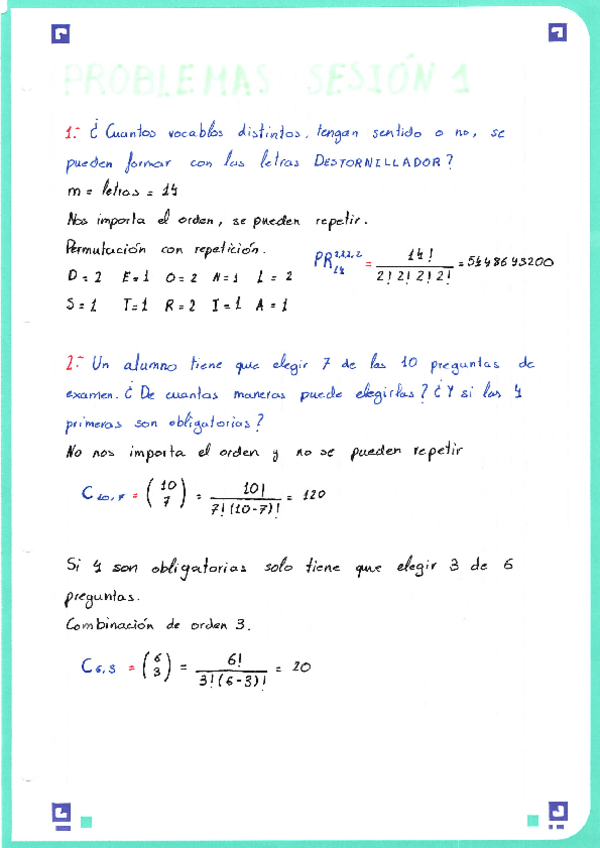 PROBLEMAS SESIÓN 1
1.- ¿Cuantos vocablos distintos, tengan sentido o no, se
pueden formar con las letras DESTORNILLADOR?
m = letras = 14
Nos importa el orden, se pueden repetir.
Permutación con repetición.
PR 2,2,2,2 14 = 14! / 2! 2! 2! 2! = 5448643200
D=2 E=1 O=2 N=1 L=2
S=1 T=1 R=2 I=1 A=1
2.- Un alumno tiene que elegir 7 de las 10 preguntas de
examen. ¿De cuantas maneras puede elegirlas? ¿Y si las 4
primeras son obligatorias?
No nos importa el orden y no se pueden repetir
C10,7 = (10 7) = 10! / 7!(10-7)! = 120
Si 4 son obligatorias solo tiene que elegir 3 de 6
preguntas.
Combinación de orden 3.
C6,3 = (6 3) = 6! / 3!(6-3)! = 20